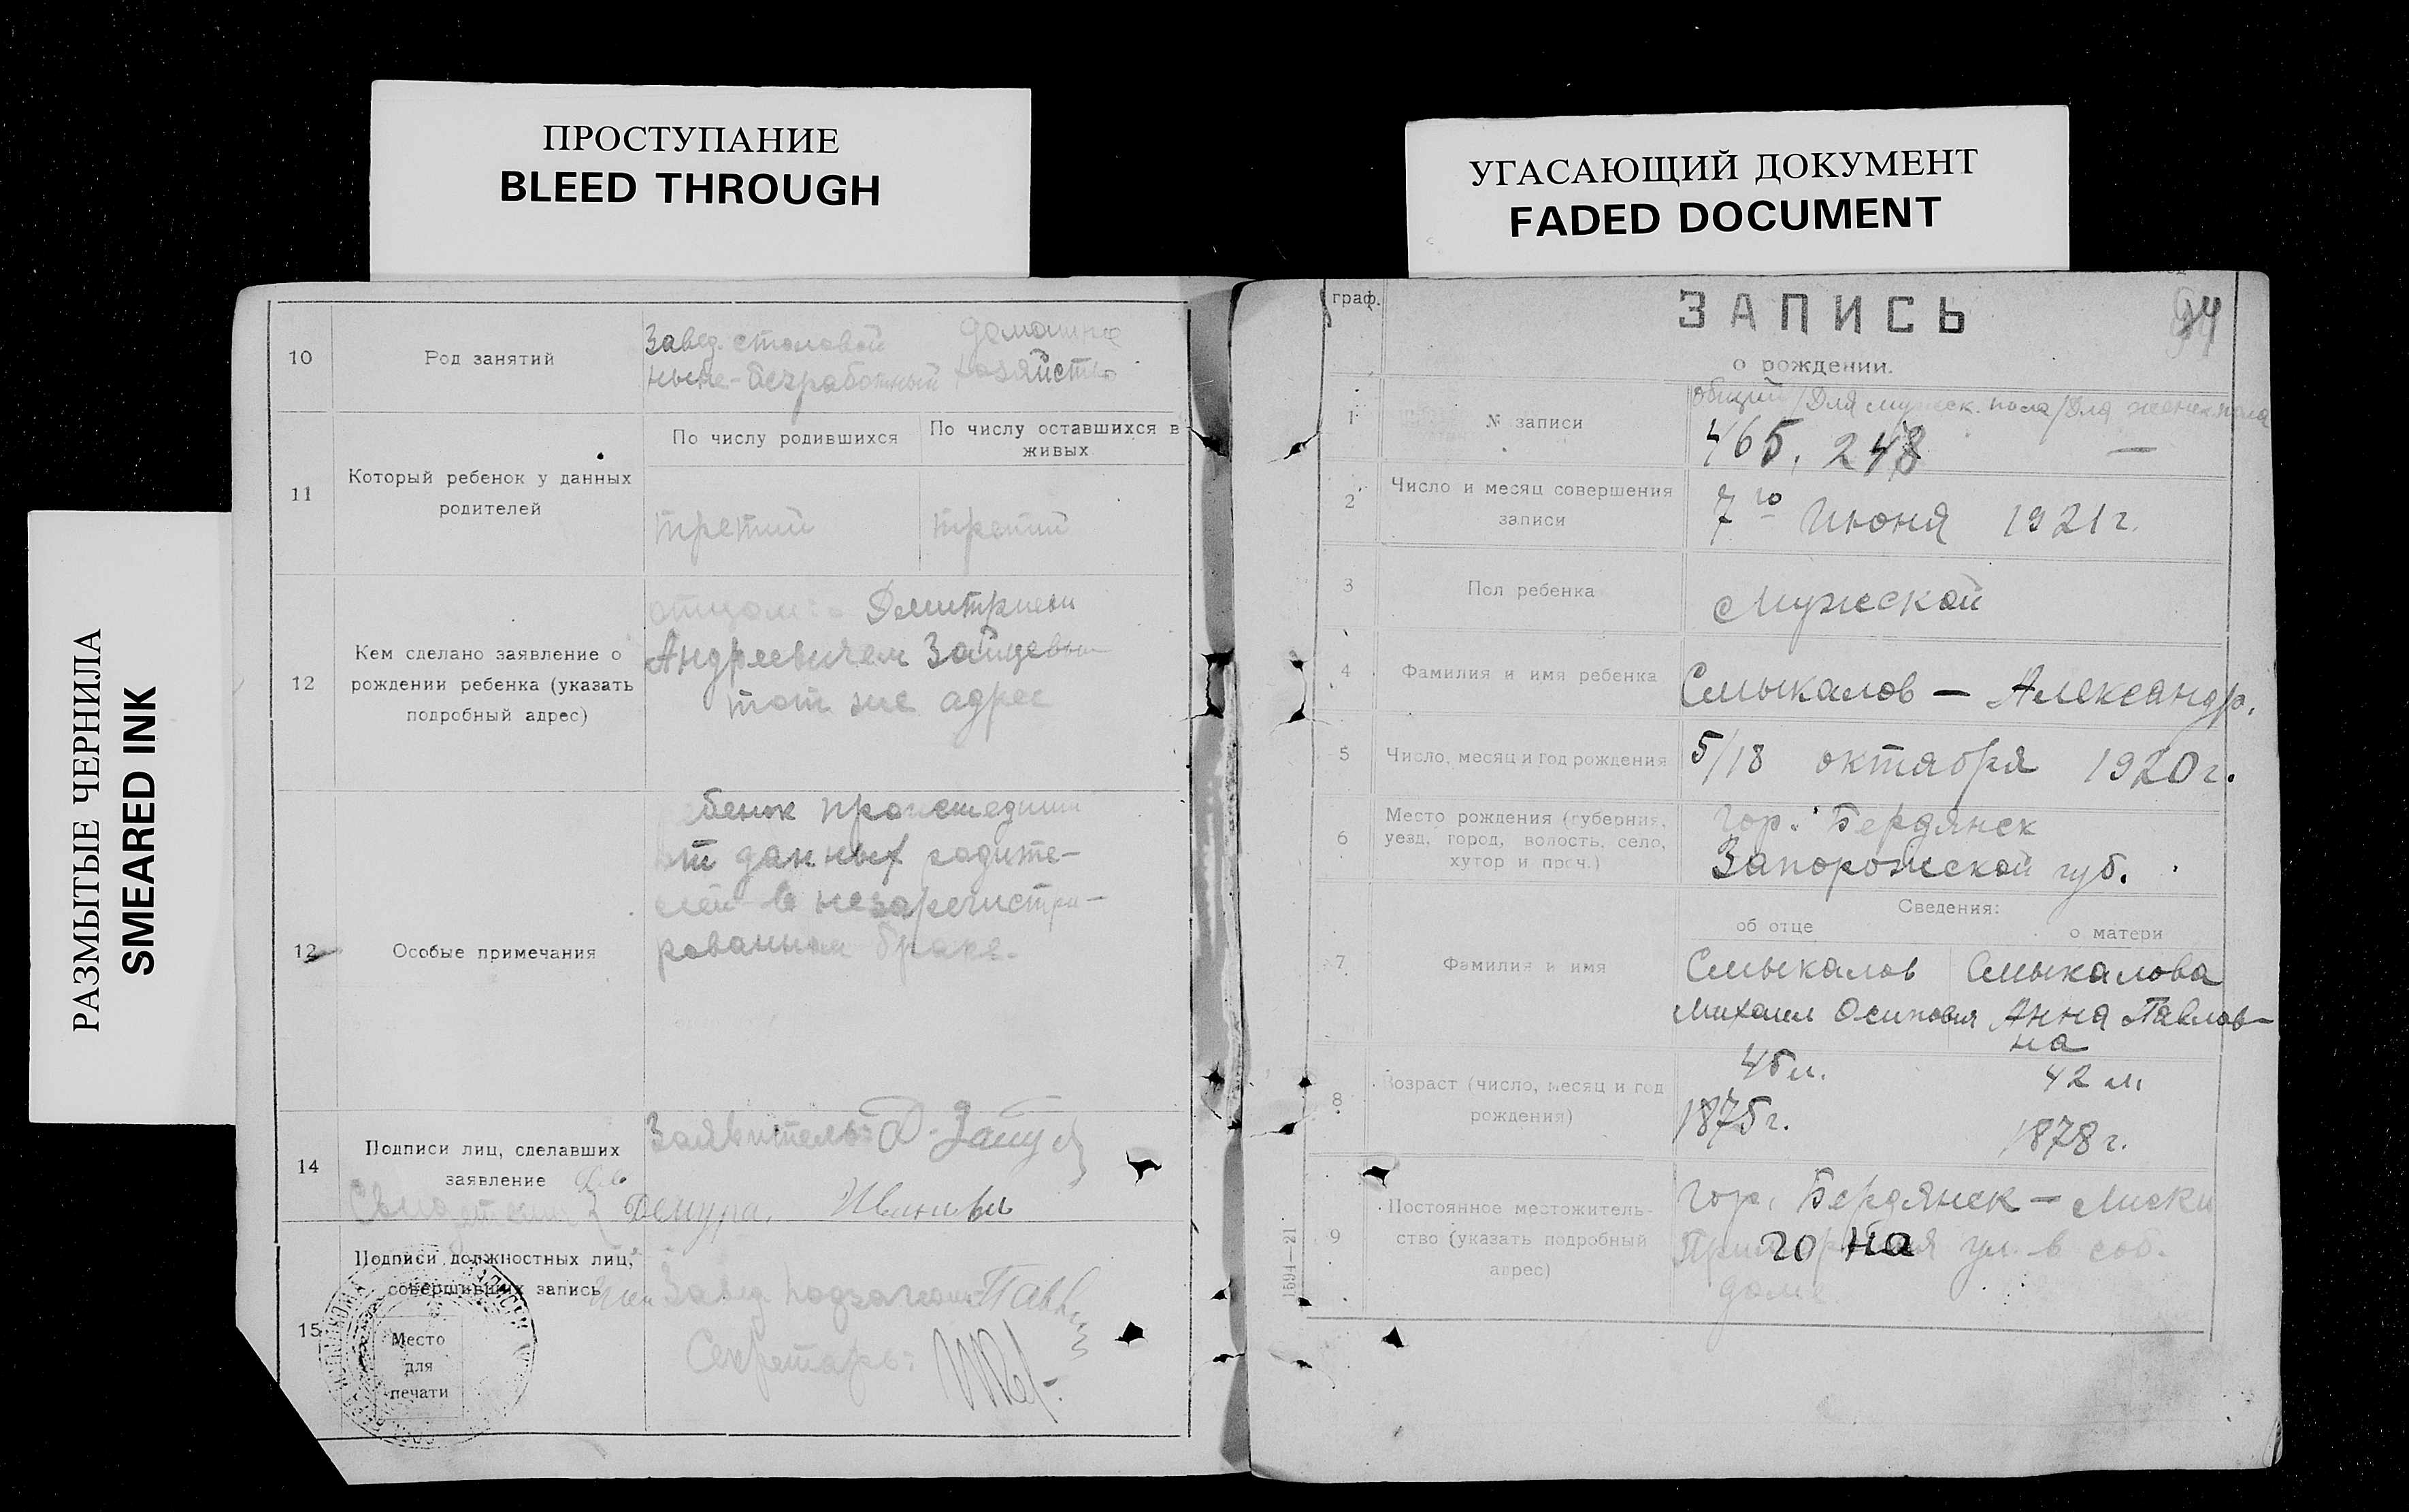 ПРОСТУПАНИЕ
BLEED THROUGH
УГАСАЮЩИЙ ДОКУМЕНТ
FADED DOCUMENT
РАЗМЫТЫЕ ЧЕРНИЛА
SMEARED INK
10
Род занятий
Завед. столовой
ныне-безработный
домашнее
хозяйство
11
Который ребенок у данных
родителей
По числу родившихся
По числу оставшихся в
живых
третий
третий
12
Кем сделано заявление о
рождении ребенка (указать
подробный адрес)
отцом: Дмитрием
Андреевичем Зайцевым
тот же адрес
12
Особые примечания
ребенок происшедший
от данных родите-
лей в незарегистри-
рованном браке.
14
Подписи лиц, сделавших
заявление
Заявитель: Д.
Свидетели
15
Подписи должностных лиц,
совершивших запись
Место
для
печати
Завед.
Секретарь:
граф.
ЗАПИСЬ
94
о рождении.
1
№ записи
общий/Для мужск. пола/Для женск. пола
465, 248 —
2
Число и месяц совершения
записи
7го Июня 1921 г.
3
Пол ребенка
Мужской
4
Фамилия и имя ребенка
Смыкалов — Александр.
5
Число, месяц и год рождения
5/18 октября 1920 г.
6
Место рождения (губерния,
уезд, город, волость, село,
хутор и проч.)
Гор. Бердянск
Запорожской губ.
Сведения:
об отце
о матери
7
Фамилия и имя
Смыкалов
Михаил Осипович
Смыкалова
Анна Павлов-
на
8
Возраст (число, месяц и год
рождения)
45 л.
1875 г.
42 л.
1878 г.
9
Постоянное местожитель-
ство (указать подробный
адрес)
Гор. Бердянск — Лиски
ул. в соб.
доме.
1594—21